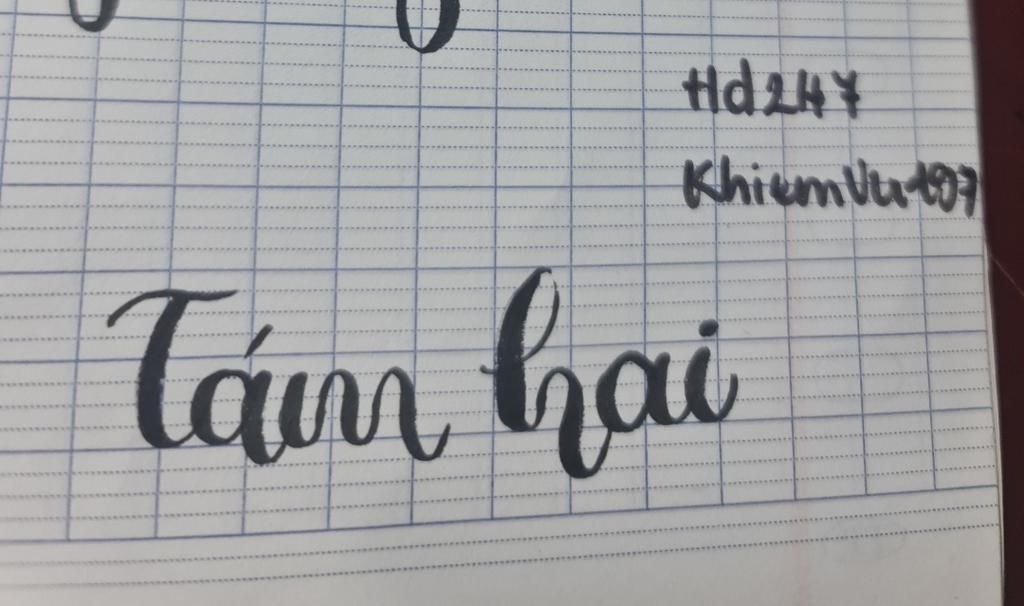 Hd247
KhiemVu197
Tám hai